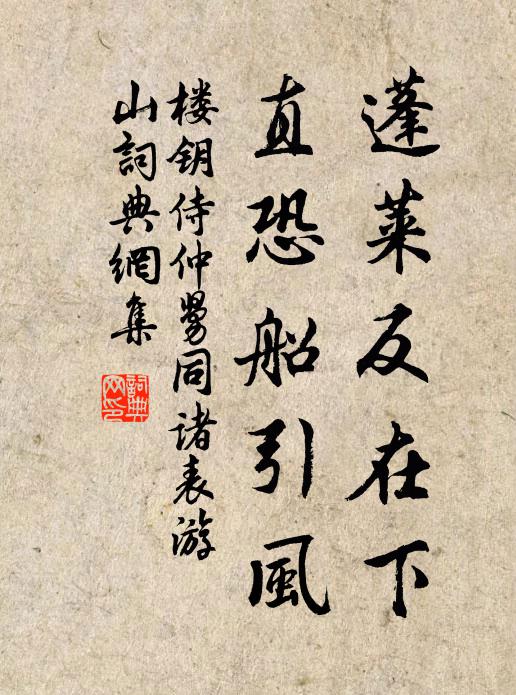 蓬萊反在下
直恐船引風
楼钥侍仲舅同诸表游
山詞典網集
詞典
网印